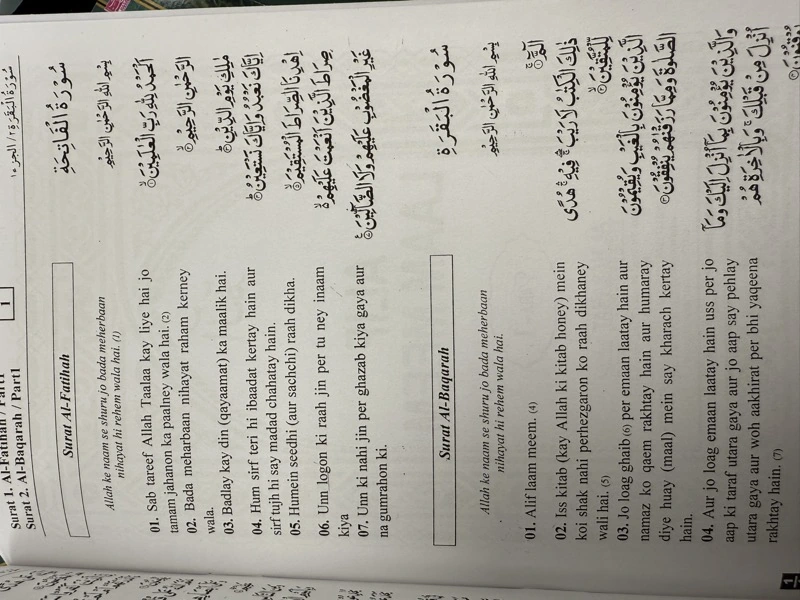 Surat 1. Al-Fatihah / Part1
Surat 2. Al-Baqarah / Part1
1
سُوْرَةُ الْبَقَرَة ٢ / الجزء ١
Surat Al-Fatihah
سُوْرَةُ الْفَاتِحَةِ
Allah ke naam se shuru jo bada meherbaan
nihayat hi rehem wala hai. (1)
بِسْمِ اللهِ الرَّحْمٰنِ الرَّحِيْمِ
01. Sab tareef Allah Taalaa kay liye hai jo
tamam jahanon ka paalney wala hai. (2)
02. Bada meharbaan nihayat raham kerney
wala.
03. Badlay kay din (qayaamat) ka maalik hai.
04. Hum sirf teri hi ibaadat kertay hain aur
sirf tujh hi say madad chahatay hain.
05. Humein seedhi (aur sachchi) raah dikha.
06. Unn logon ki raah jin per tu ney inaam
kiya
07. Unn ki nahi jin per ghazab kiya gaya aur
na gumrahon ki.
اَلْحَمْدُ لِلّٰهِ رَبِّ الْعٰلَمِيْنَ ①
الرَّحْمٰنِ الرَّحِيْمِ ②
مٰلِكِ يَوْمِ الدِّيْنِ ③
اِيَّاكَ نَعْبُدُ وَاِيَّاكَ نَسْتَعِيْنُ ④
اِهْدِنَا الصِّرَاطَ الْمُسْتَقِيْمَ ⑤
صِرَاطَ الَّذِيْنَ اَنْعَمْتَ عَلَيْهِمْ ⑥
غَيْرِ الْمَغْضُوْبِ عَلَيْهِمْ وَلَا الضَّآلِّيْنَ ⑦
Surat Al-Baqarah
سُوْرَةُ الْبَقَرَةِ
Allah ke naam se shuru jo bada meherbaan
nihayat hi rehem wala hai.
بِسْمِ اللهِ الرَّحْمٰنِ الرَّحِيْمِ
01. Alif laam meem. (4)
02. Iss kitab (kay Allah ki kitab honey) mein
koi shak nahi perhezgaron ko raah dikhaney
wali hai. (5)
03. Jo loag ghaib (6) per emaan laatay hain aur
namaz ko qaem rakhtay hain aur humaray
diye huay (maal) mein say kharach kertay
hain.
04. Aur jo loag emaan laatay hain uss per jo
aap ki taraf utara gaya aur jo aap say pehlay
utara gaya aur woh aakhirat per bhi yaqeena
rakhtay hain. (7)
الٓمّٓ ①
ذٰلِكَ الْكِتٰبُ لَا رَيْبَ ۛ فِيْهِ ۛ هُدًى
لِّلْمُتَّقِيْنَ ②
الَّذِيْنَ يُؤْمِنُوْنَ بِالْغَيْبِ وَيُقِيْمُوْنَ
الصَّلٰوةَ وَمِمَّا رَزَقْنٰهُمْ يُنْفِقُوْنَ ③
وَالَّذِيْنَ يُؤْمِنُوْنَ بِمَآ اُنْزِلَ اِلَيْكَ وَمَآ
اُنْزِلَ مِنْ قَبْلِكَ ۚ وَبِالْاٰخِرَةِ هُمْ
1